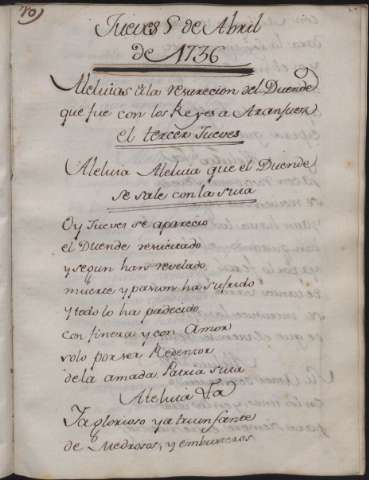 70)
Jueves 5 de Abril
de 1736
Aleluias a la resurecion del Duende
que fue con los Reyes a Aranjuez
el tercer Jueves
Aleluia Aleluia que el Duende
se sale con la suia
Oy Jueves se aparecio
el Duende resucitado
y segun han revelado
muerte y pasion ha sufrido
y todo lo ha padecido
con fineza y con Amor
solo por ser Redentor
de la amada Patria suia
Aleluia &a
Ya glorioso ya triunfante
de Medrosos, y embusteros